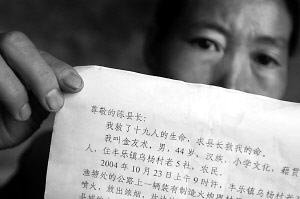 尊敬的陈县长：
我救了十九人的生命，求县长救我的命。
我叫金友术，男，44岁，汉族，小学文化，籍贯
人，住丰乐镇乌杨村老5社，农民。
2004年10月23日上午9时许，丰乐镇乌杨村
渔塘处的公路上一辆装有制造火炮
喷火，放出浓烟，